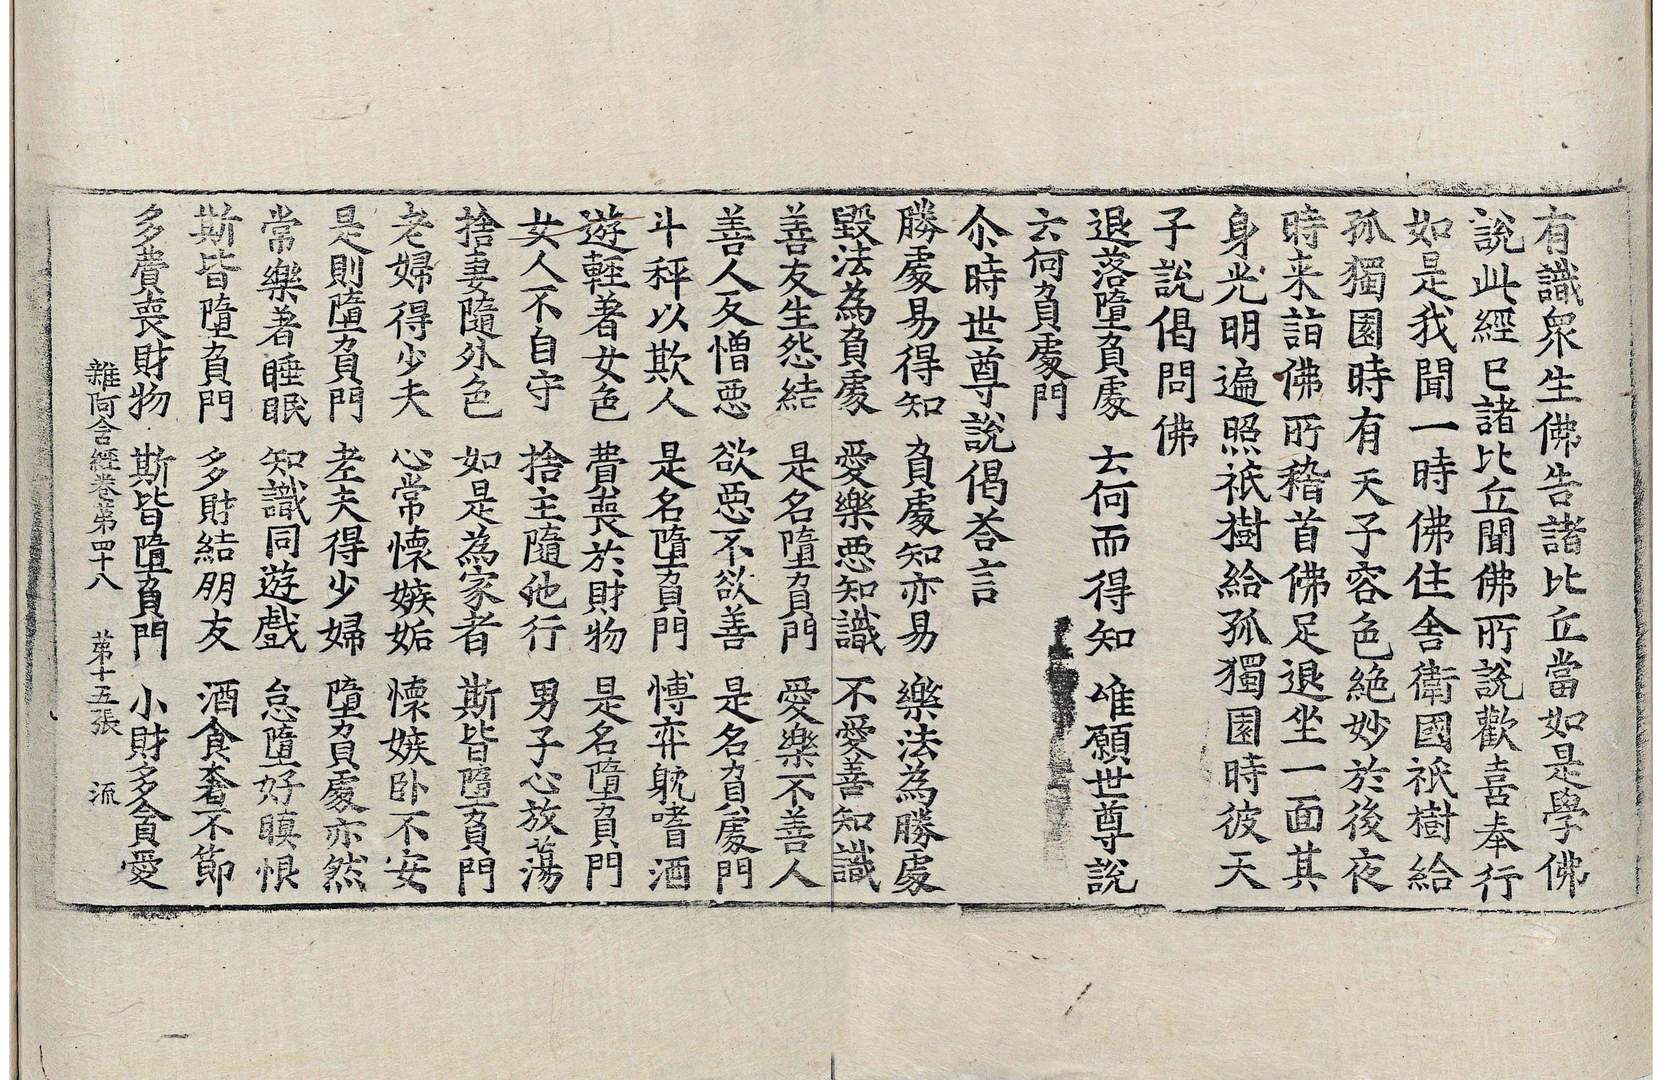 有識衆生佛告諸比丘當如是學佛
說此經已諸比丘聞佛所說歡喜奉行
如是我聞一時佛住舍衛國祇樹給
孤獨園時有天子容色絶妙於後夜
時来詣佛所稽首佛足退坐一面其
身光明遍照祇樹給孤獨園時彼天
子說偈問佛
退落墮負處　云何而得知　唯願世尊說
云何負處門
尒時世尊說偈荅言
勝處易得知　負處知亦易　樂法為勝處
毀法為負處　愛樂惡知識　不愛善知識
善友生怨結　是名墮負門　愛樂不善人
善人反憎惡　欲惡不欲善　是名負處門
斗秤以欺人　是名墮負門　愽弈躭嗜酒
遊輕著女色　費喪於財物　是名墮負門
女人不自守　捨主隨他行　男子心放蕩
捨妻隨外色　如是為家者　斯皆墮負門
老婦得少夫　心常懷嫉姤　懷嫉卧不安
是則墮負門　老夫得少婦　墮負處亦然
常樂著睡眠　知識同遊戲　怠墮好瞋恨
斯皆墮負門　多財結朋友　酒食奢不節
多費喪財物　斯皆墮負門　小財多貪愛
雜阿含經卷第四十八　第十五張　流